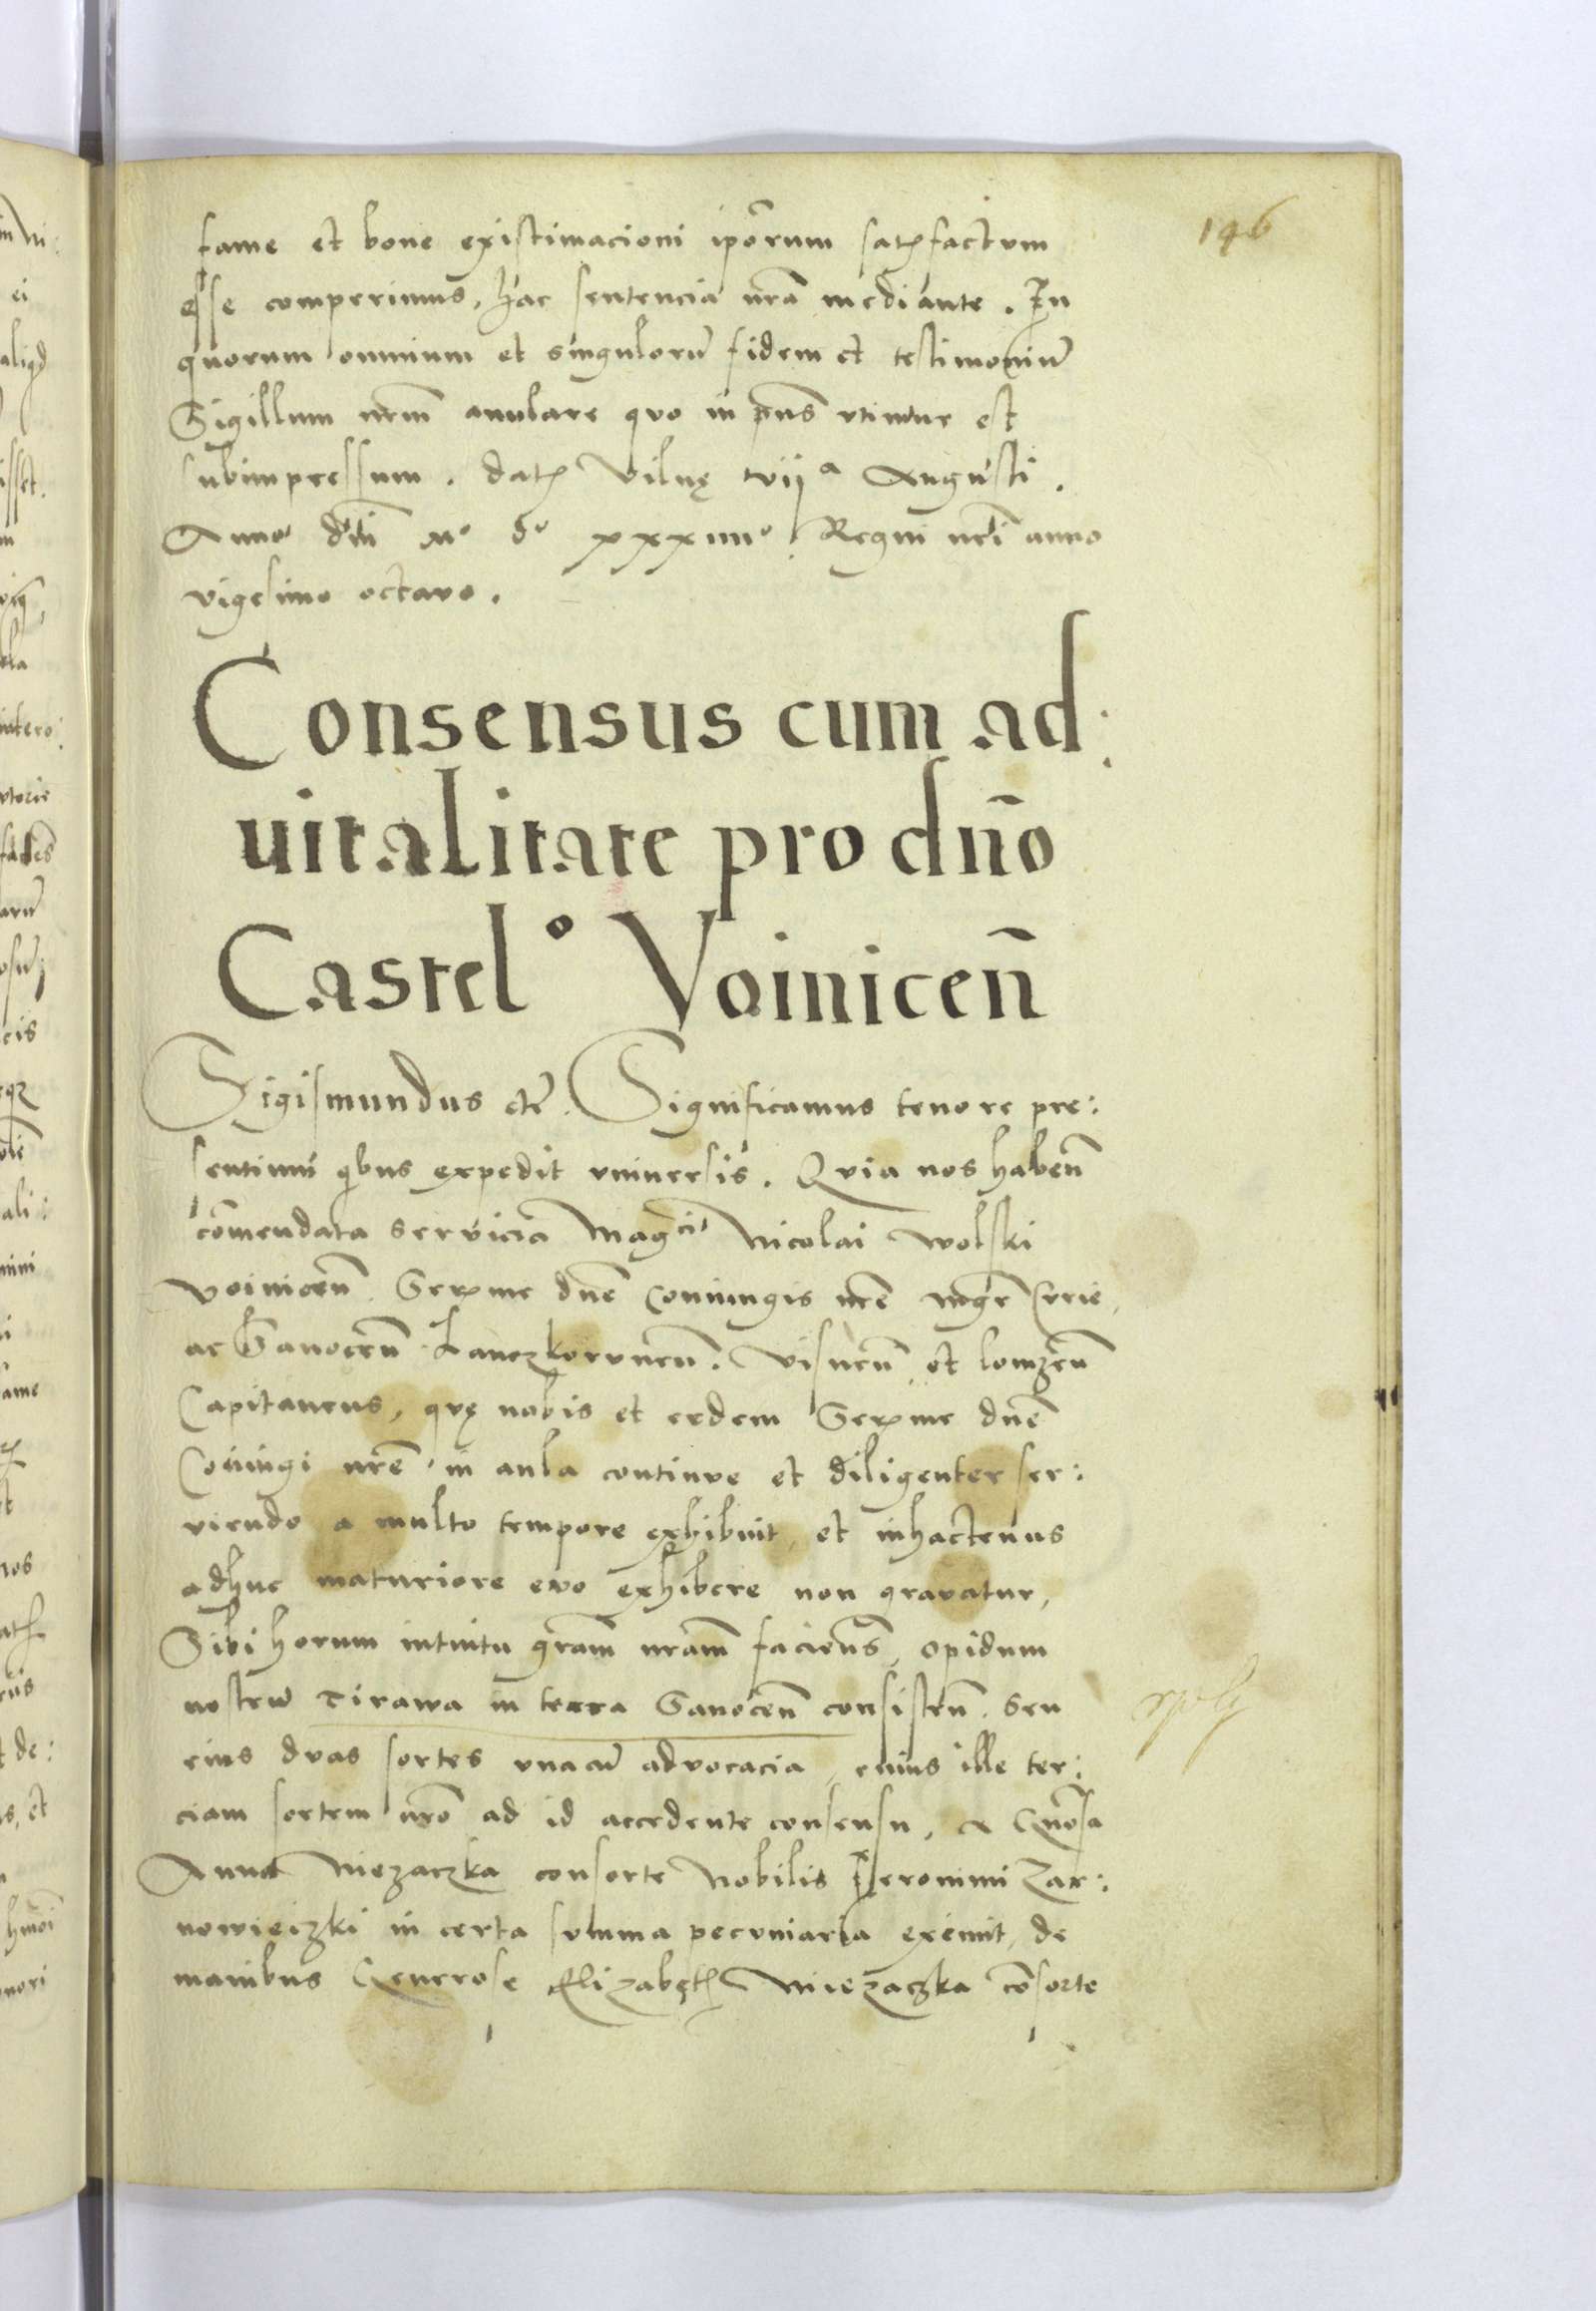 146
fame et bone existimacioni ipōrum satisfactum
esse comperimus, hac sentencia nrā mediante. In
quorum omnium et singulorū fidem et testimoniū
Sigillum nrm̄ anulare quo in pn̄s vtimur est
subimpressum. dat Vilnę viiª Augusti.
Anno dn̄i Mº dº xxxiiiiº. Regni nrī anno
vigesimo octavo.
Consensus cum ad:
uitalitate pro dn̄o
Castelº Voinicen̄
Sigismundus etc̄. Significamus tenore pre:
sentium qbus expedit vniversis. Quia nos haben̄
cōmendata servicia Magci Nicolai Wolski
Voinicen̄ Serme dn̄e Coniungis nrē mgr̄e Crrie,
ac Sanocen̄ Lanczkorunen̄. Visnen̄ et lomzen̄
Capitaneus, quę nobis et eedem Serme dn̄e
Coniugi nrē in aula continue et diligenter ser:
viendo a multo tempore exhibuit, et inhactenus
adhuc maturiore evo exhibere non gravatur,
Sibi horum intuitu grām nrām facien̄s, opidum
nostrū Tirawa in terra Sanocen̄ consisten̄. seu
eius duas sortes vnacū advocacia, cuius ille ter:
ciam sortem nrō ad id accedente consensu, a Gnōsa
Anna Niezaczka consorte Nobilis Jeronimi Zar:
nowieczki in certa summa pecuniaria exemit, de
manibus Generose Elizabęth Niezaczka cōsorte